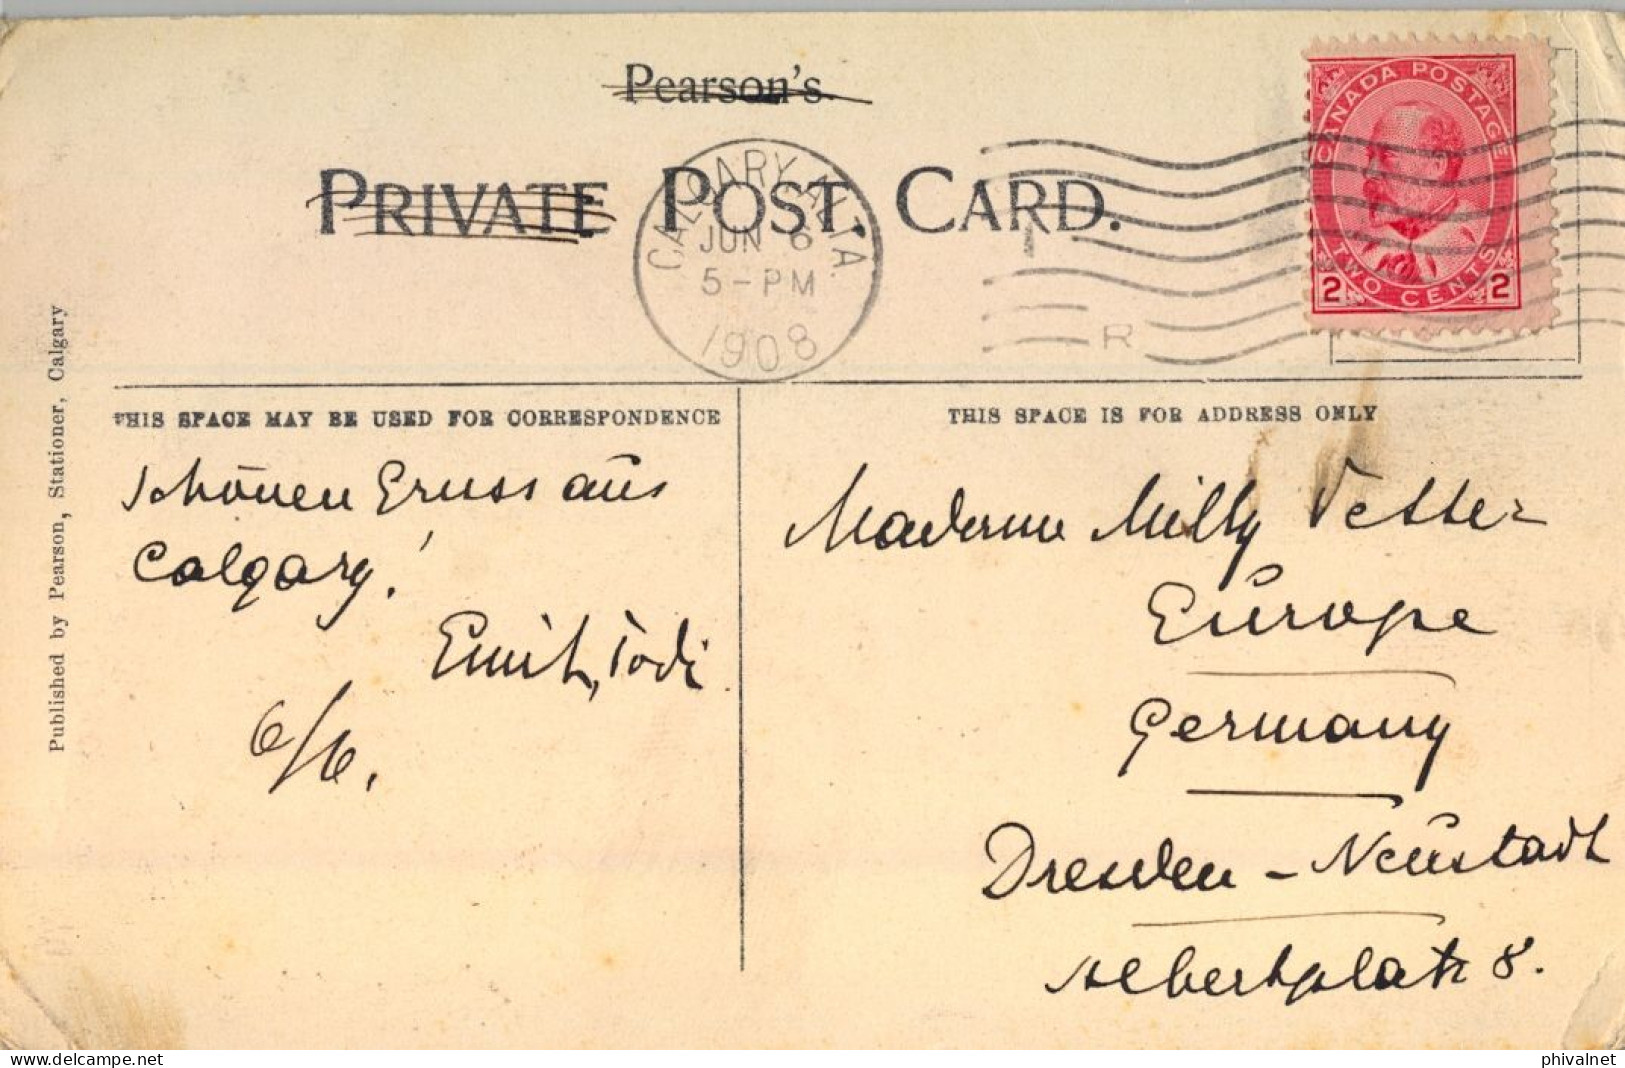 Pearson's
PRIVATE POST CARD.
CALGARY, ALTA.
JUN 6
5-PM
1908
R
CANADA POSTAGE
TWO CENTS
2 2
Published by Pearson, Stationer, Calgary
THIS SPACE MAY BE USED FOR CORRESPONDENCE
Schönen Gruss aus
Calgary!
6/6.
THIS SPACE IS FOR ADDRESS ONLY
Madame Milly Vetter
Europe
Germany
Dresden - Neustadt
Albertplatz 8.
delcampe.net
phivalnet